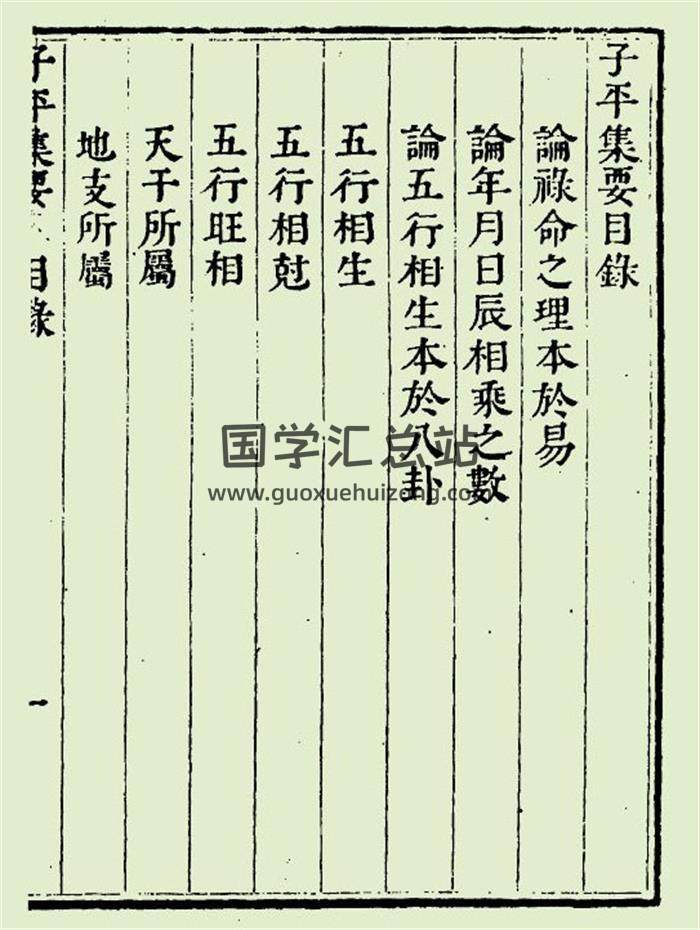 子平集要目錄
論祿命之理本於易
論年月日辰相乘之數
論五行相生本於八卦
五行相生
五行相尅
五行旺相
天干所屬
地支所屬
子平集要 目錄
一
国学汇总站
www.guoxuehuizong.com